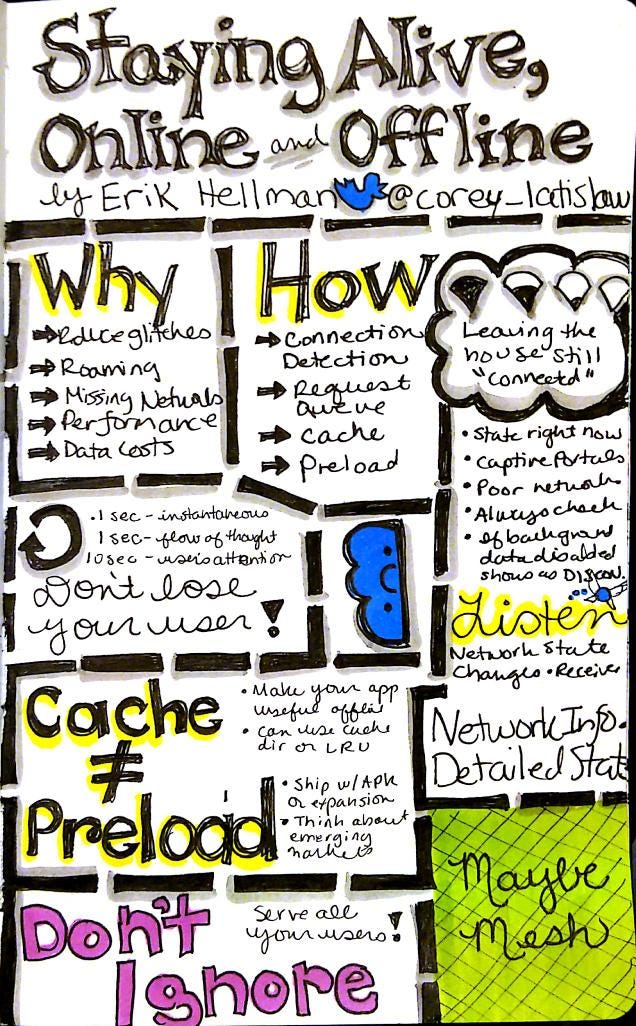 Staying Alive,
Online and Offline
by Erik Hellman @corey_latislaw
Why
Reduce glitches
Roaming
Missing Networks
Performance
Data Costs
How
Connection
Detection
Request
Queue
Cache
Preload
Leaving the
house still
"connectd"
• State right now
• Captive Portals
• Poor network
• Always check
• If background
data disabled
shows as DISCON.
.1 sec - instantaneous
1 sec - flow of thought
10 sec - user's attention
Don't lose
your user!
Listen
Network State
Changes • Receiver
NetworkInfo.
Detailed State
Cache
≠
Preload
• Make your app
useful offline
• Can use cache
dir or LRU
• Ship w/APK
or expansion
• Think about
emerging
markets
Maybe
Mesh
Don't
Ignore
Serve all
your users!